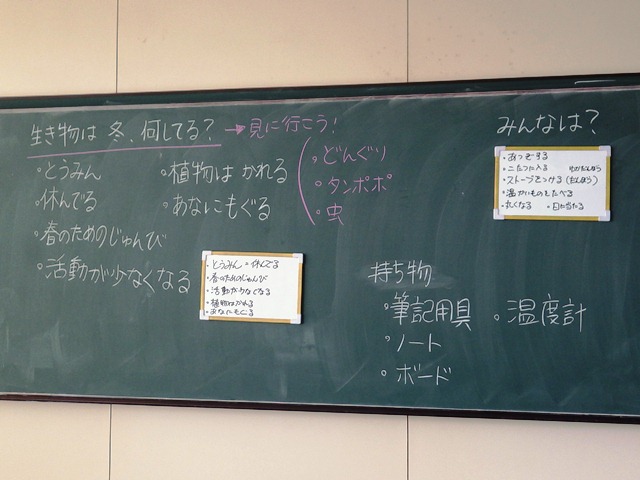 生き物は 冬、何してる？ → 見に行こう！
・とうみん
・休んでる
・春のためのじゅんび
・活動が少なくなる
・植物は かれる
・あなにもぐる
・どんぐり
・タンポポ
・虫
・とうみん ・休んでる
・春のためのじゅんび
・活動が少なくなる
・植物はかれる
・あなにもぐる
みんなは？
・あつぎする
・こたつに入る
・ストーブをつける (だんぼう)
・温かいものをたべる
・丸くなる ・日に当たる
持ち物
・筆記用具
・ノート
・ボード
・温度計